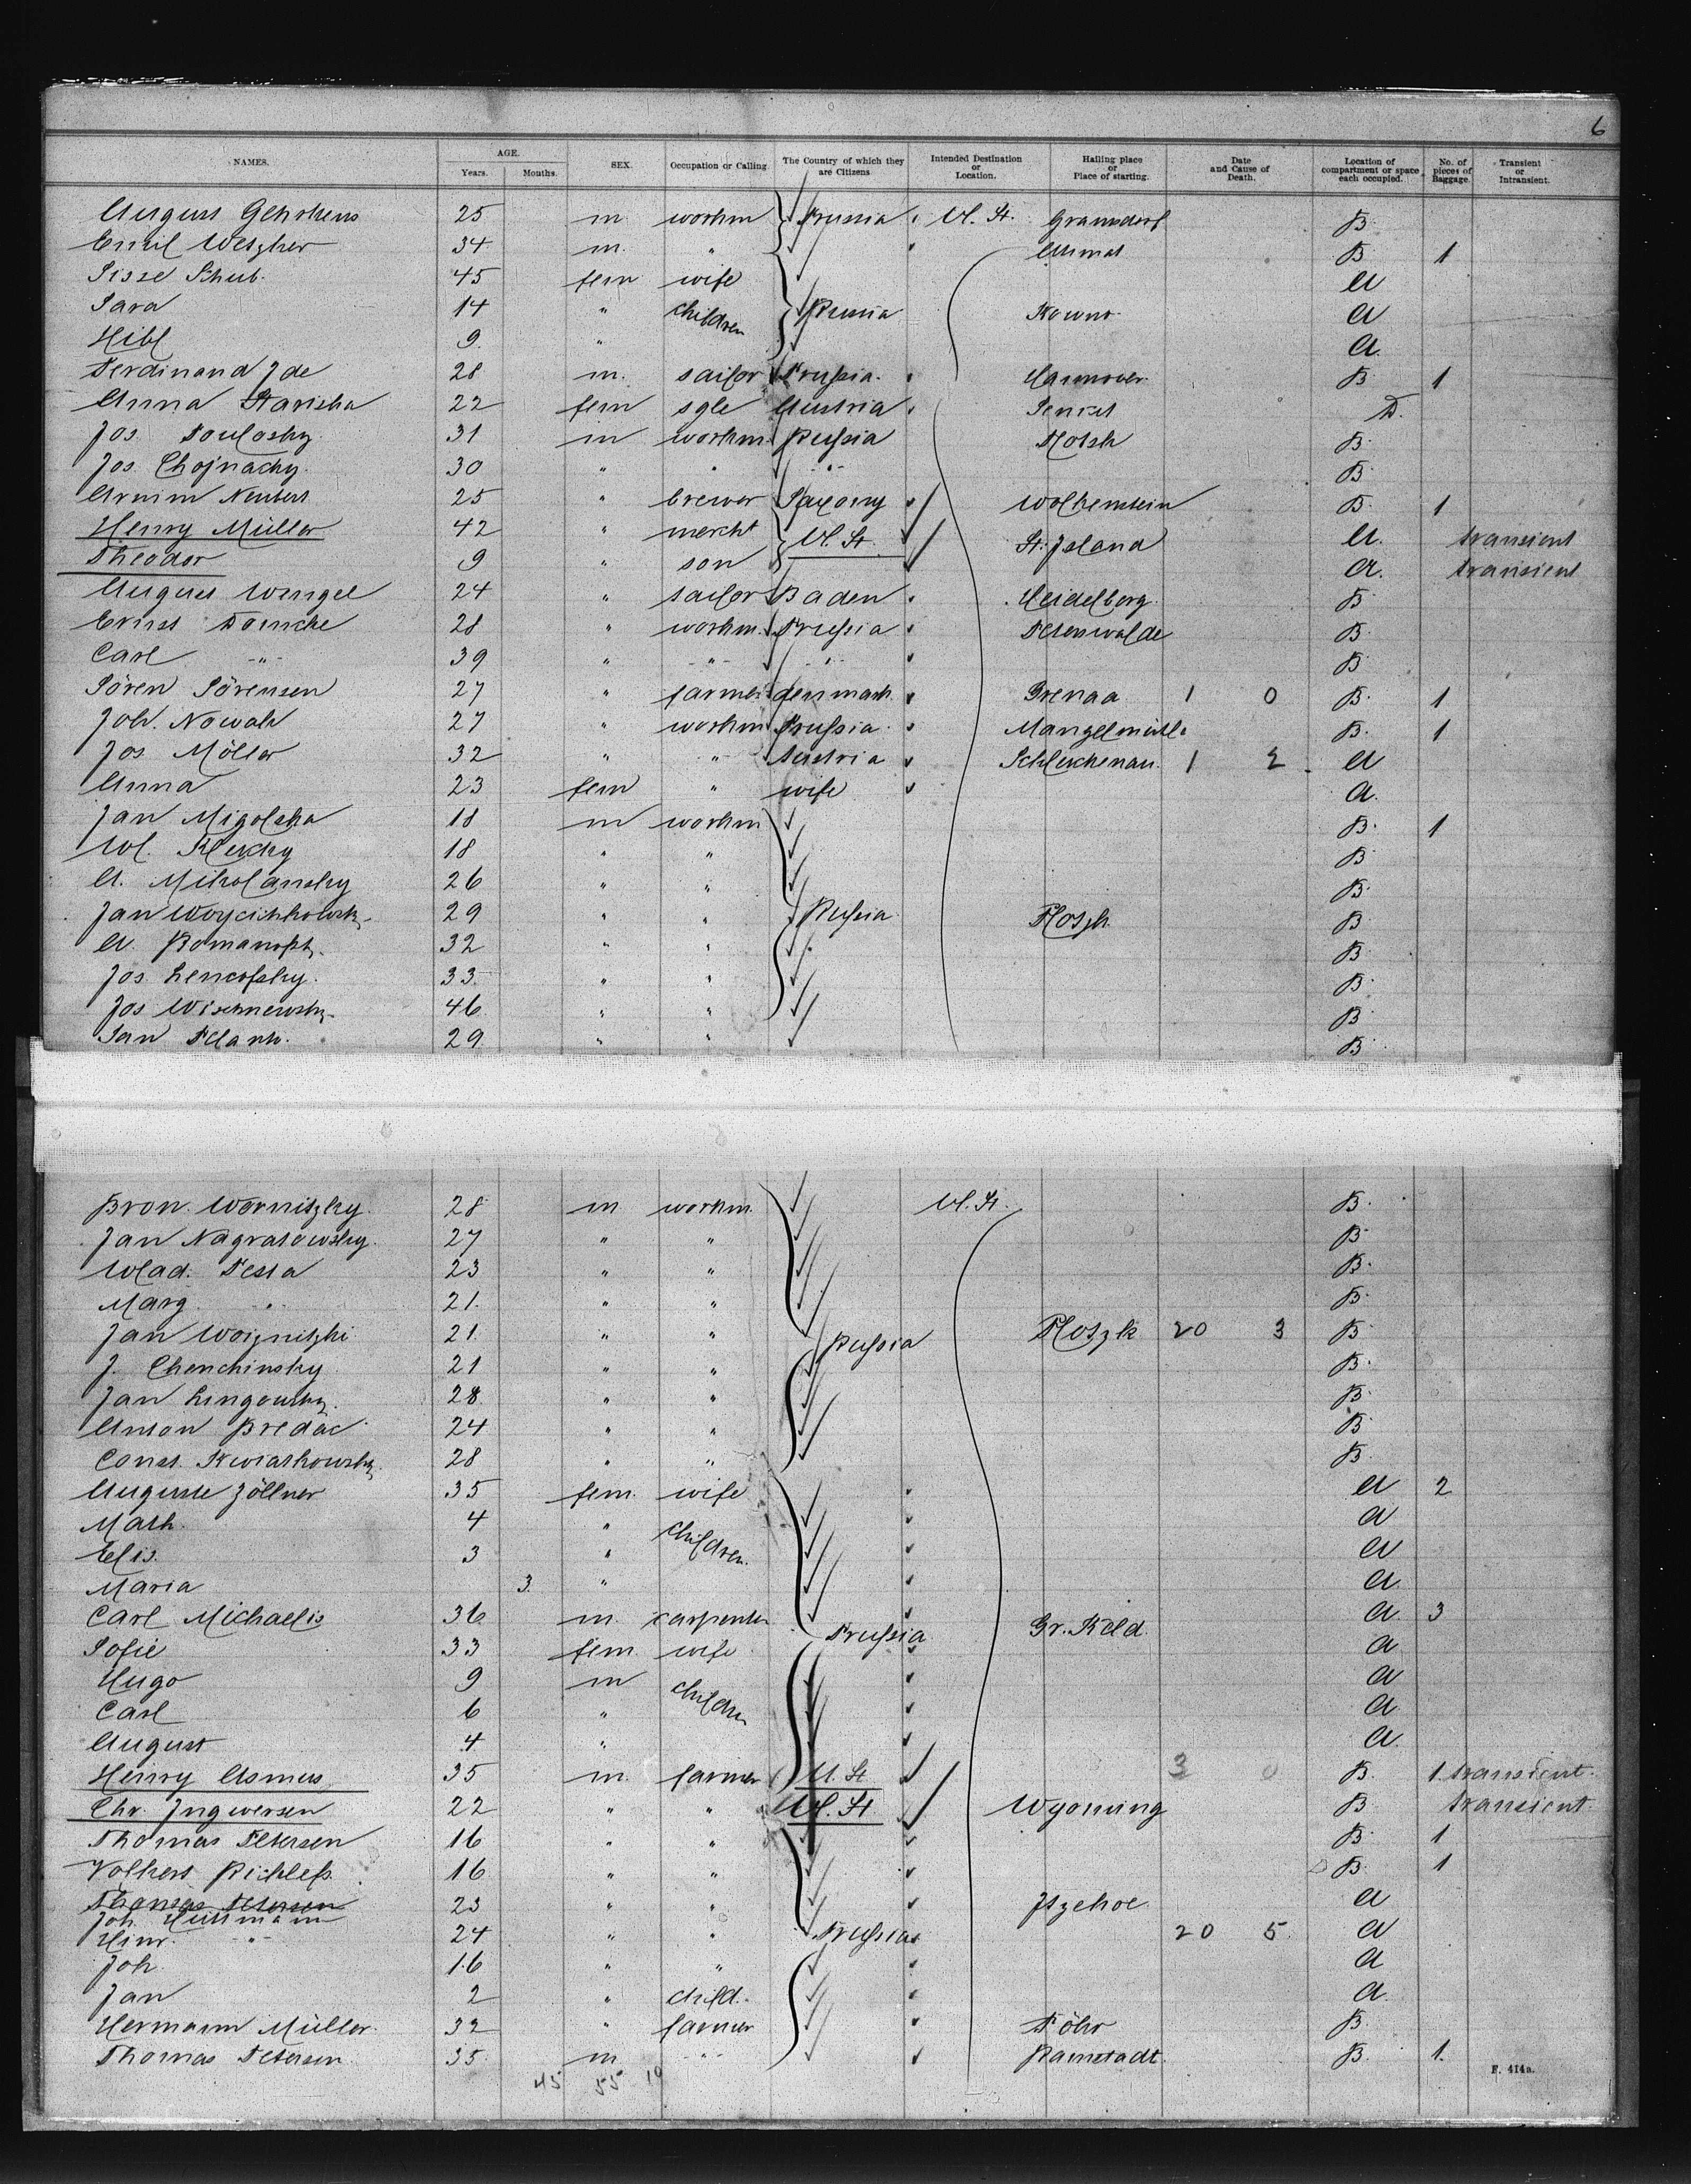 6
NAMES. AGE. Years. Months. SEX. Occupation or Calling. The Country of which they are Citizens Intended Destination or Location. Hailing place or Place of starting. Date and Cause of Death. Location of compartment or space each occupied. No. of pieces of Baggage. Transient or Intransient.
August Gehrkens 25 m workm Prussia U. St. B.
Emil 34 m. " B. 1
Sisse Schub. 45 fem wife a
Sara 14 " children Russia Kowno a
Hibl 9 " a.
Ferdinand Jde 28 m. sailor Prussia. Hannover. B. 1
Anna Starisha 22 fem sgle Austria. D.
Jos. 31 m workm. Russia Plotsk B.
Jos. Chojnacky. 30 " " " B.
Armin Neubert 25 " brewer Saxony Wolkenstein B. 1
Henry Müller 42 " mercht U. St. St. Island a. transient
Theodor 9 " son a. transient
August Wengel 24 " sailor Baden. Heidelberg. B.
Ernst Domcke 28 " workm. Prussia Petersvalde B.
Carl " 39 " " " B.
Sören Sörensen 27 " farmer denmark. Grenaa 1 0 B. 1
Joh. Nowak 27 " workm Prussia. Mangelmühle B. 1
Jos. Möller 32 " " Austria Schluckenau. 1 2. a
Anna 23 fem " wife a.
Jan Migolska 18 m workm B. 1
Wl. Klucky 18 " " B.
A. Mikolansky 26 " " B.
Jan Woycichkowsk. 29 " " Russia Plotzk. B.
A. 32 " " B.
Jos. Lencofsky. 33. " " B.
Jos. Wischnewsky. 46 " " B.
Jan Plank. 29. " " B.
Bron. Wornitzky. 28 m workm. U. St. B.
Jan Nagratowsky. 27 " " B.
Wlad. Pesta 23 " " B.
Marg. " 21. " " B.
Jan Woiznitzki 21. " " Russia Plotzk 20 3 B.
J. Chenchinsky 21 " " B.
Jan Lingowsky. 28. " " B.
Anton Bredac 24 " " B.
Const. Kwiatkowsky. 28 " " B.
Auguste Zöllner 35 fem. wife a 2
Math. 4 " children. a
Elis. 3 " a
Maria 3. " a.
Carl Michaelis 36 m. carpenter Prussia Gr. a. 3
Sofie 33 fem. wife a
Hugo 9 m children a
Carl 6 " a.
August 4 " a.
Henry Asmus 35 m. farmer U. St 3 0 B. 1. transient.
Chr. Ingwersen 22 " " U. St. Wyoming B. transient.
Thomas Petersen 16 " " B. 1
Volkert 16 " " B. 1
Thomas Petersen
Joh. 23 " " Itzehoe a
Hinr. " 24 " " Prussia 20 5. a
Joh. 16 " " a
Jan 2 " child. a.
Hermann Müller 32 " farmer Föhr B.
Thomas Petersen. 35. m " Ramstadt. B. 1.
45 55 10
F. 414a.